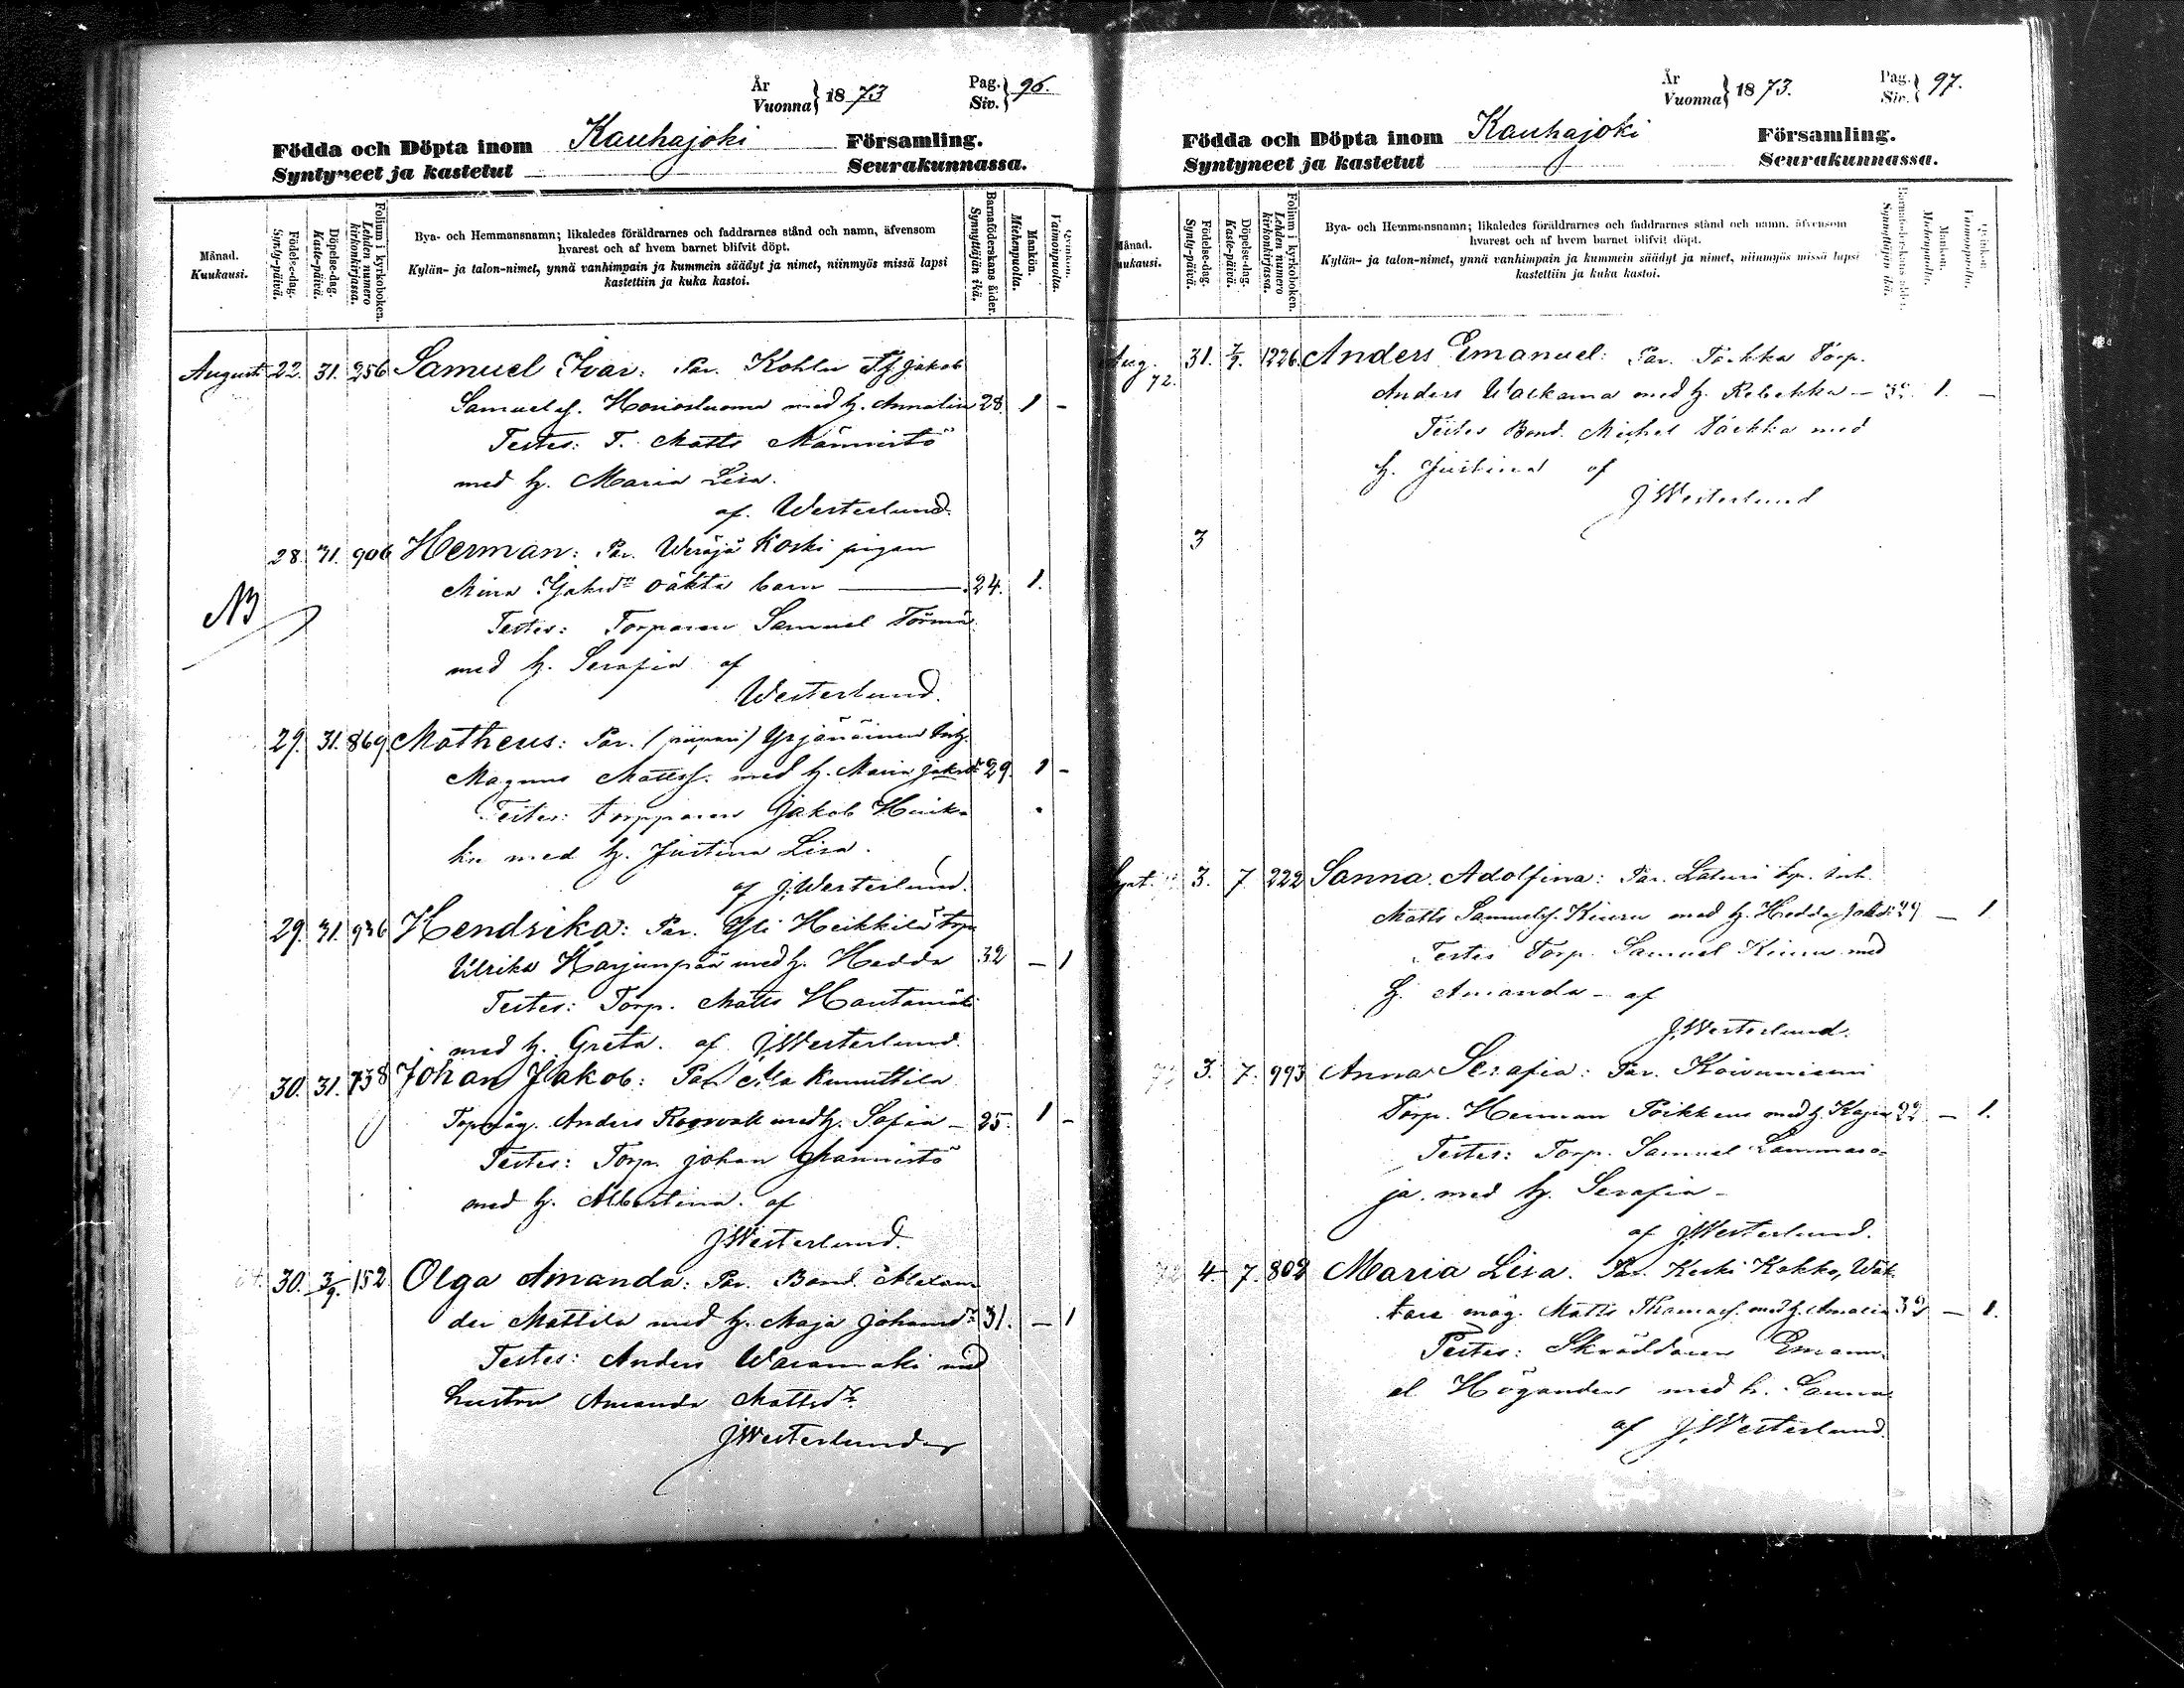 År
Vuonna } 1873
Pag.
Siv. } 96.
Födda och Döpta inom Kauhajoki Församling.
Syntyneet ja kastetut Seurakunnassa.
Månad.
Kuukausi.
Födelse-dag.
Synty-päivä.
Döpelse-dag.
Kaste-päivä.
Folium i kyrkoboken.
Lehden numero
kirkonkirjassa.
Bya- och Hemmansnamn; likaledes föräldrarnes och faddrarnes stånd och namn, äfvensom
hvarest och af hvem barnet blifvit döpt.
Kylän- ja talon-nimet, ynnä vanhimpain ja kummein säädyt ja nimet, niinmyös missä lapsi
kastettiin ja kuka kastoi.
Barnaföderskans ålder.
Synnyttäjän ikä.
Mankön.
Miehenpuolia.
Qvinkön.
Vaimonpuolia.
Augusti 22. 31. 256 Samuel Ivar: Par. Jakob
Samuels. med h. 28 1 -
Testes: T. Matts Männistö
med h. Maria Lisa.
af. Westerlund.
28. 31. 906 Herman: Par. Koski pigan
Mina oäkta barn — 24. 1.
Testes: Torparen Samuel Törmä
med h. Serafia af
Westerlund.
NB
29. 31. 869 Matheus: Par. Yrjänäinen
Magnus Mattss. med h. Maria 29. 1 -
Testes: torpparen Jakob
med h. Justina Lisa.
af J. Westerlund.
29. 31. 936 Hendrika: Par. Yli Heikkilä torp
Ulrika Harjunpää med h. Hedda 32 - 1
Testes: Torp. Matts Hautamäki
med h. Greta. af J. Westerlund
30. 31. 738 Johan Jakob: Par Ala Knuuttila
Anders med h. Sofia - 25. 1 -
Testes: Torp. Johan Männistö
med h. Albertina. af
J Westerlund.
30. 3/9. 152 Olga Amanda: Par. Bond. Alexan
der Mattila med h. Maja Johansdr 31. - 1
Testes: Anders Waramäki med
hustru Amanda Mattsdr.
J Westerlund
År
Vuonna } 1873.
Pag.
Siv. } 97.
Födda och Döpta inom Kauhajoki Församling.
Syntyneet ja kastetut Seurakunnassa.
Månad.
Kuukausi.
Födelse-dag.
Synty-päivä.
Döpelse-dag.
Kaste-päivä.
Folium i kyrkoboken.
Lehden numero
kirkonkirjassa.
Bya- och Hemmansnamn; likaledes föräldrarnes och faddrarnes stånd och namn, äfvensom
hvarest och af hvem barnet blifvit döpt.
Kylän- ja talon-nimet, ynnä vanhimpain ja kummein säädyt ja nimet, niinmyös missä lapsi
kastettiin ja kuka kastoi.
Barnaföderskans ålder.
Synnyttäjän ikä.
Mankön.
Miehenpuolia.
Qvinkön.
Vaimonpuolia.
Aug. 31. 7/9. 1226 Anders Emanuel: Par. Torp.
72.
Anders Walkama med h. Rebekka - 1. -
Testes Bond. Michel med
h. Justina af
J Westerlund
3
Sept. 3. 7 222 Sanna Adolfina: Par.
Matts Samuelss. Kiuru med h. Hedda 29 - 1
Testes Torp. Samuel Kiuru med
h. Amanda - af
J. Westerlund.
3. 7. 993 Anna Serafia: Par. Koivuniemi
Torp. Herman med h. Kajsa 22 - 1.
Testes: Torp. Samuel Lammaso-
ja. med h. Serafia -
af J. Westerlund.
4. 7. 802 Maria Lisa. Par. Keski Kokko,
tare måg. Matts Thomass. med h. Amalia 32 - 1.
Testes: Skräddaren Emanu-
el Högander med h. Sanna
af J. Westerlund.